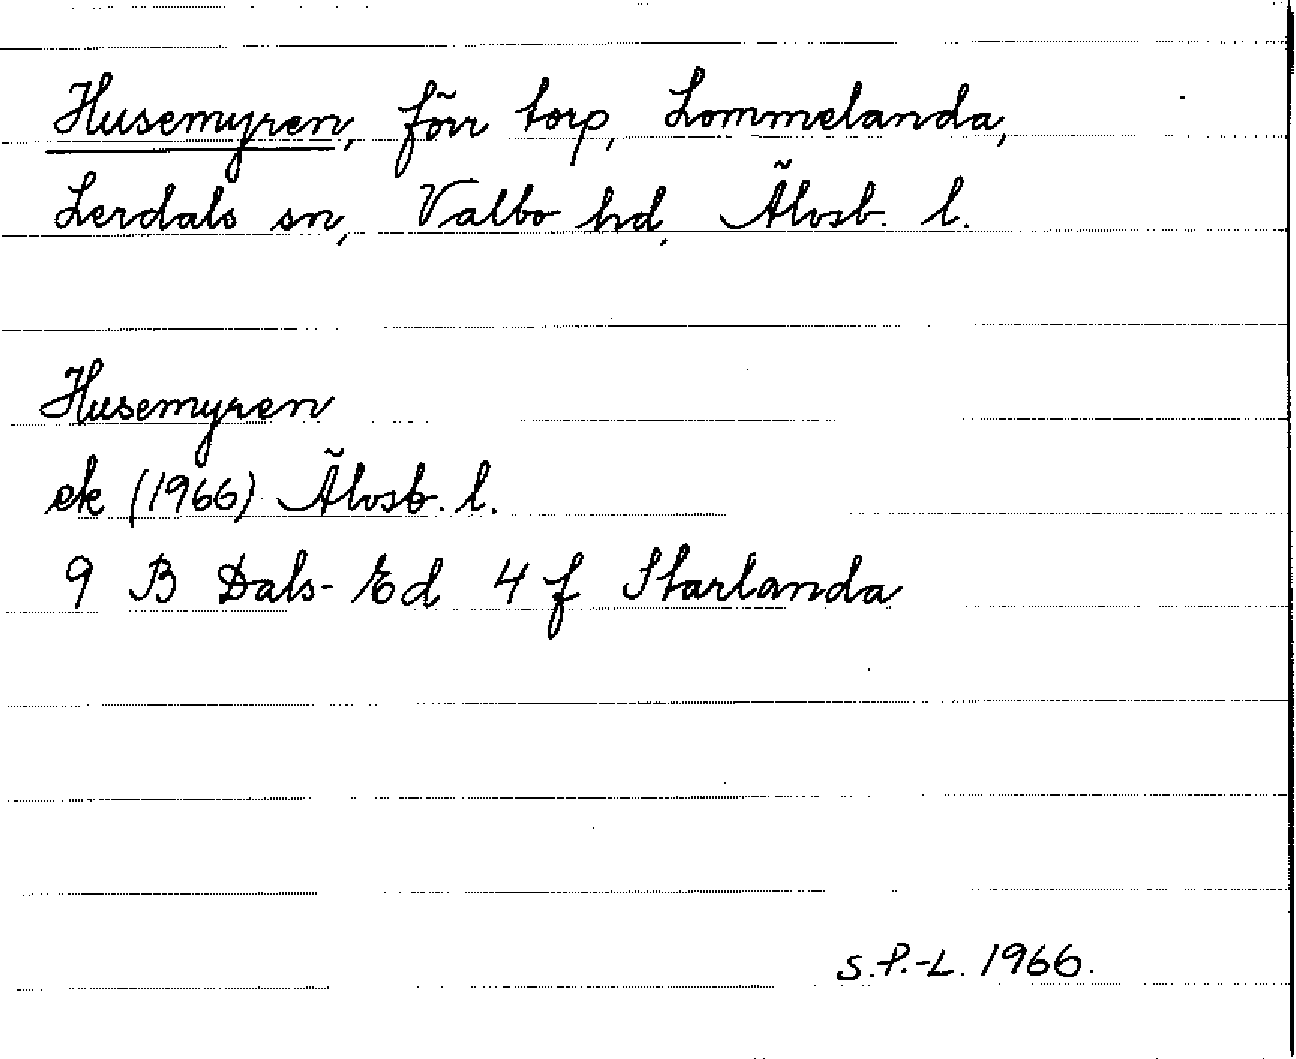 Husemyren, förr torp, Lommelanda,
Lerdals sn, Valbo hd, Älvsb. l.
Husemyren
ek (1966) Älvsb. l.
9 B Dals-Ed 4 f Starlanda
S.P.-L. 1966.